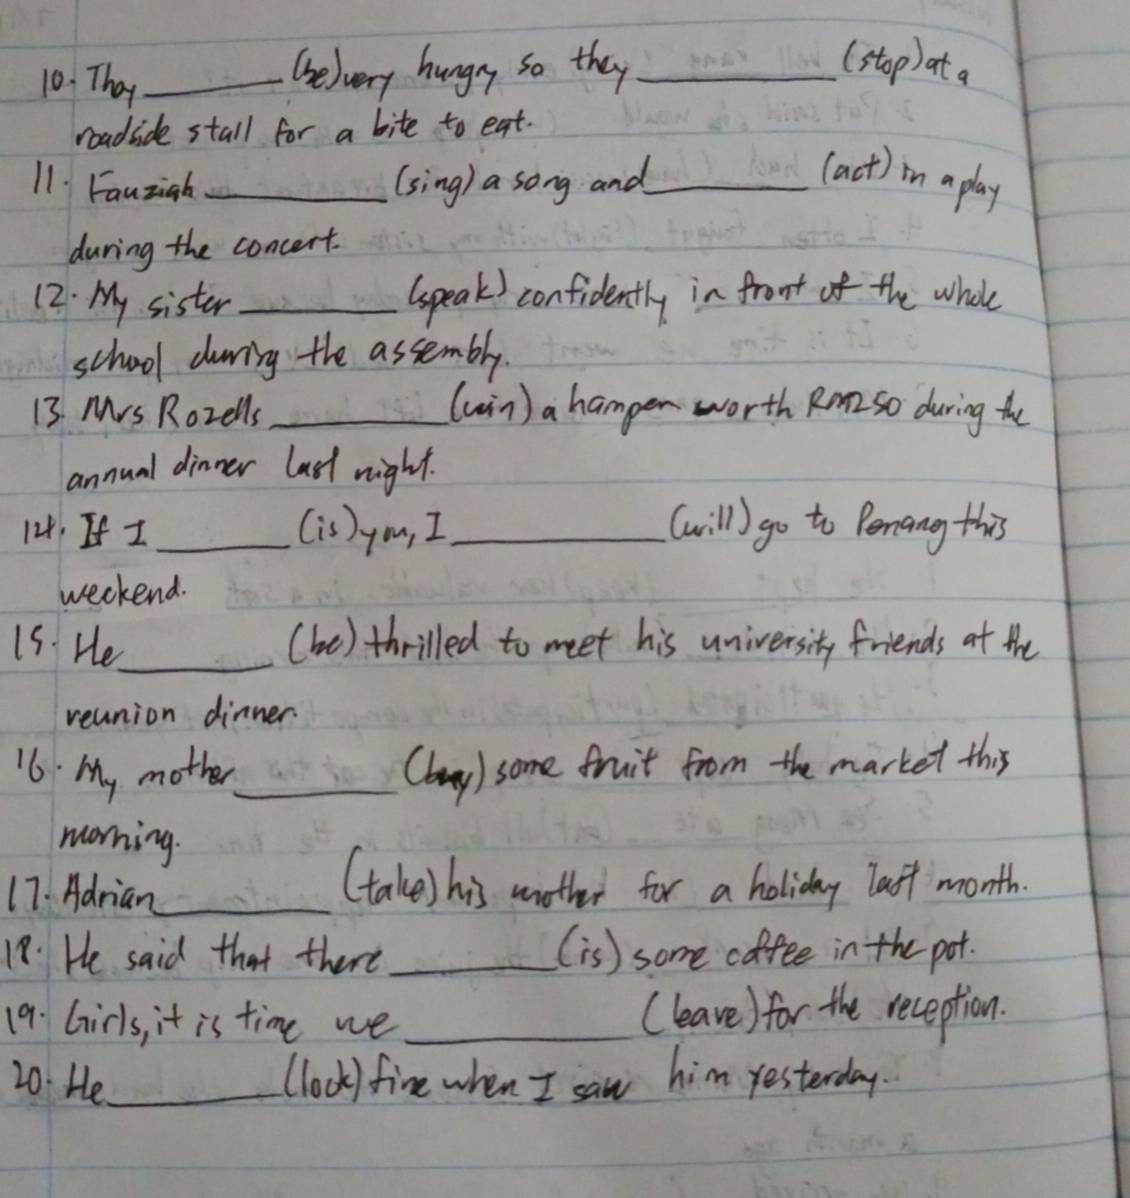 10. They ________ (be) very hungry so they ________ (stop) at a
roadside stall for a bite to eat.
11. Fauziah ________ (sing) a song and ________ (act) in a play
during the concert.
12. My sister ________ (speak) confidently in front of the whole
school during the assembly.
13. Mrs Rozells ________ (win) a hamper worth RM250 during the
annual dinner last night.
14. If I ________ (is) you, I ________ (will) go to Penang this
weekend.
15. He ________ (be) thrilled to meet his university friends at the
reunion dinner.
16. My mother ________ (buy) some fruit from the market this
morning.
17. Adrian ________ (take) his mother for a holiday last month.
18. He said that there ________ (is) some coffee in the pot.
19. Girls, it is time we ________ (leave) for the reception.
20. He ________ (look) fine when I saw him yesterday.